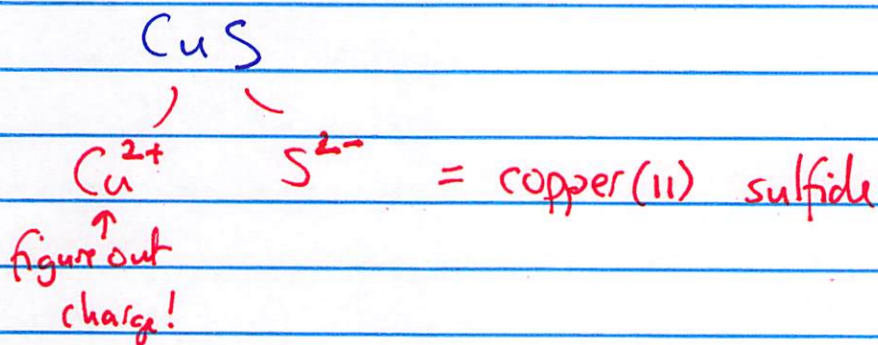 CuS
Cu²⁺ S²⁻ = copper(11) sulfide
↑
figure out
charge!